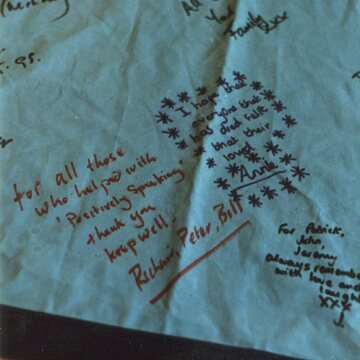 All
You
Family
xxx
. 95.
I hope that
everyone that
has died felt
that their
loved
Annie
for all those
who helped with
'Positively Speaking'
thank you
keep well
Richard, Peter, Bill
For Patrick,
John,
Jeremy
always remember
with love and
laugh
XXX